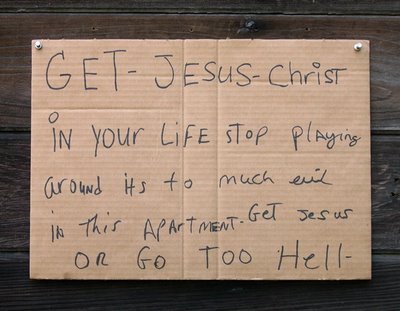 GET-JESUS-Christ
iN YOUR LiFE STOP Playing
around its to much evil
in this APARTMENT-Get Jesus
OR GO TOO Hell-